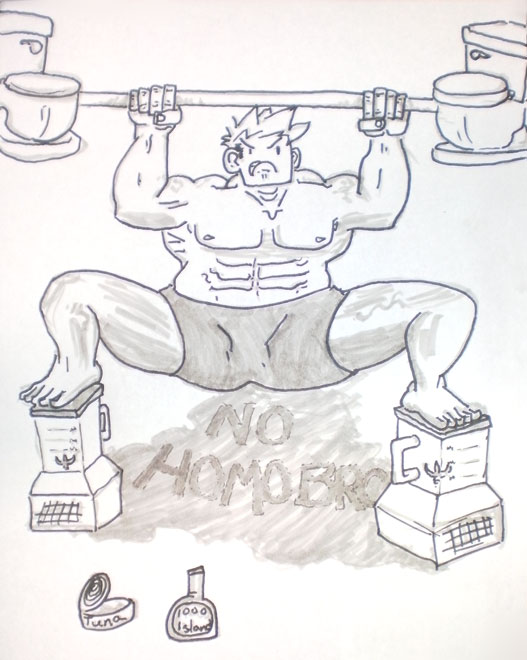 NO
HOMO BRO
Tuna
1000
Island